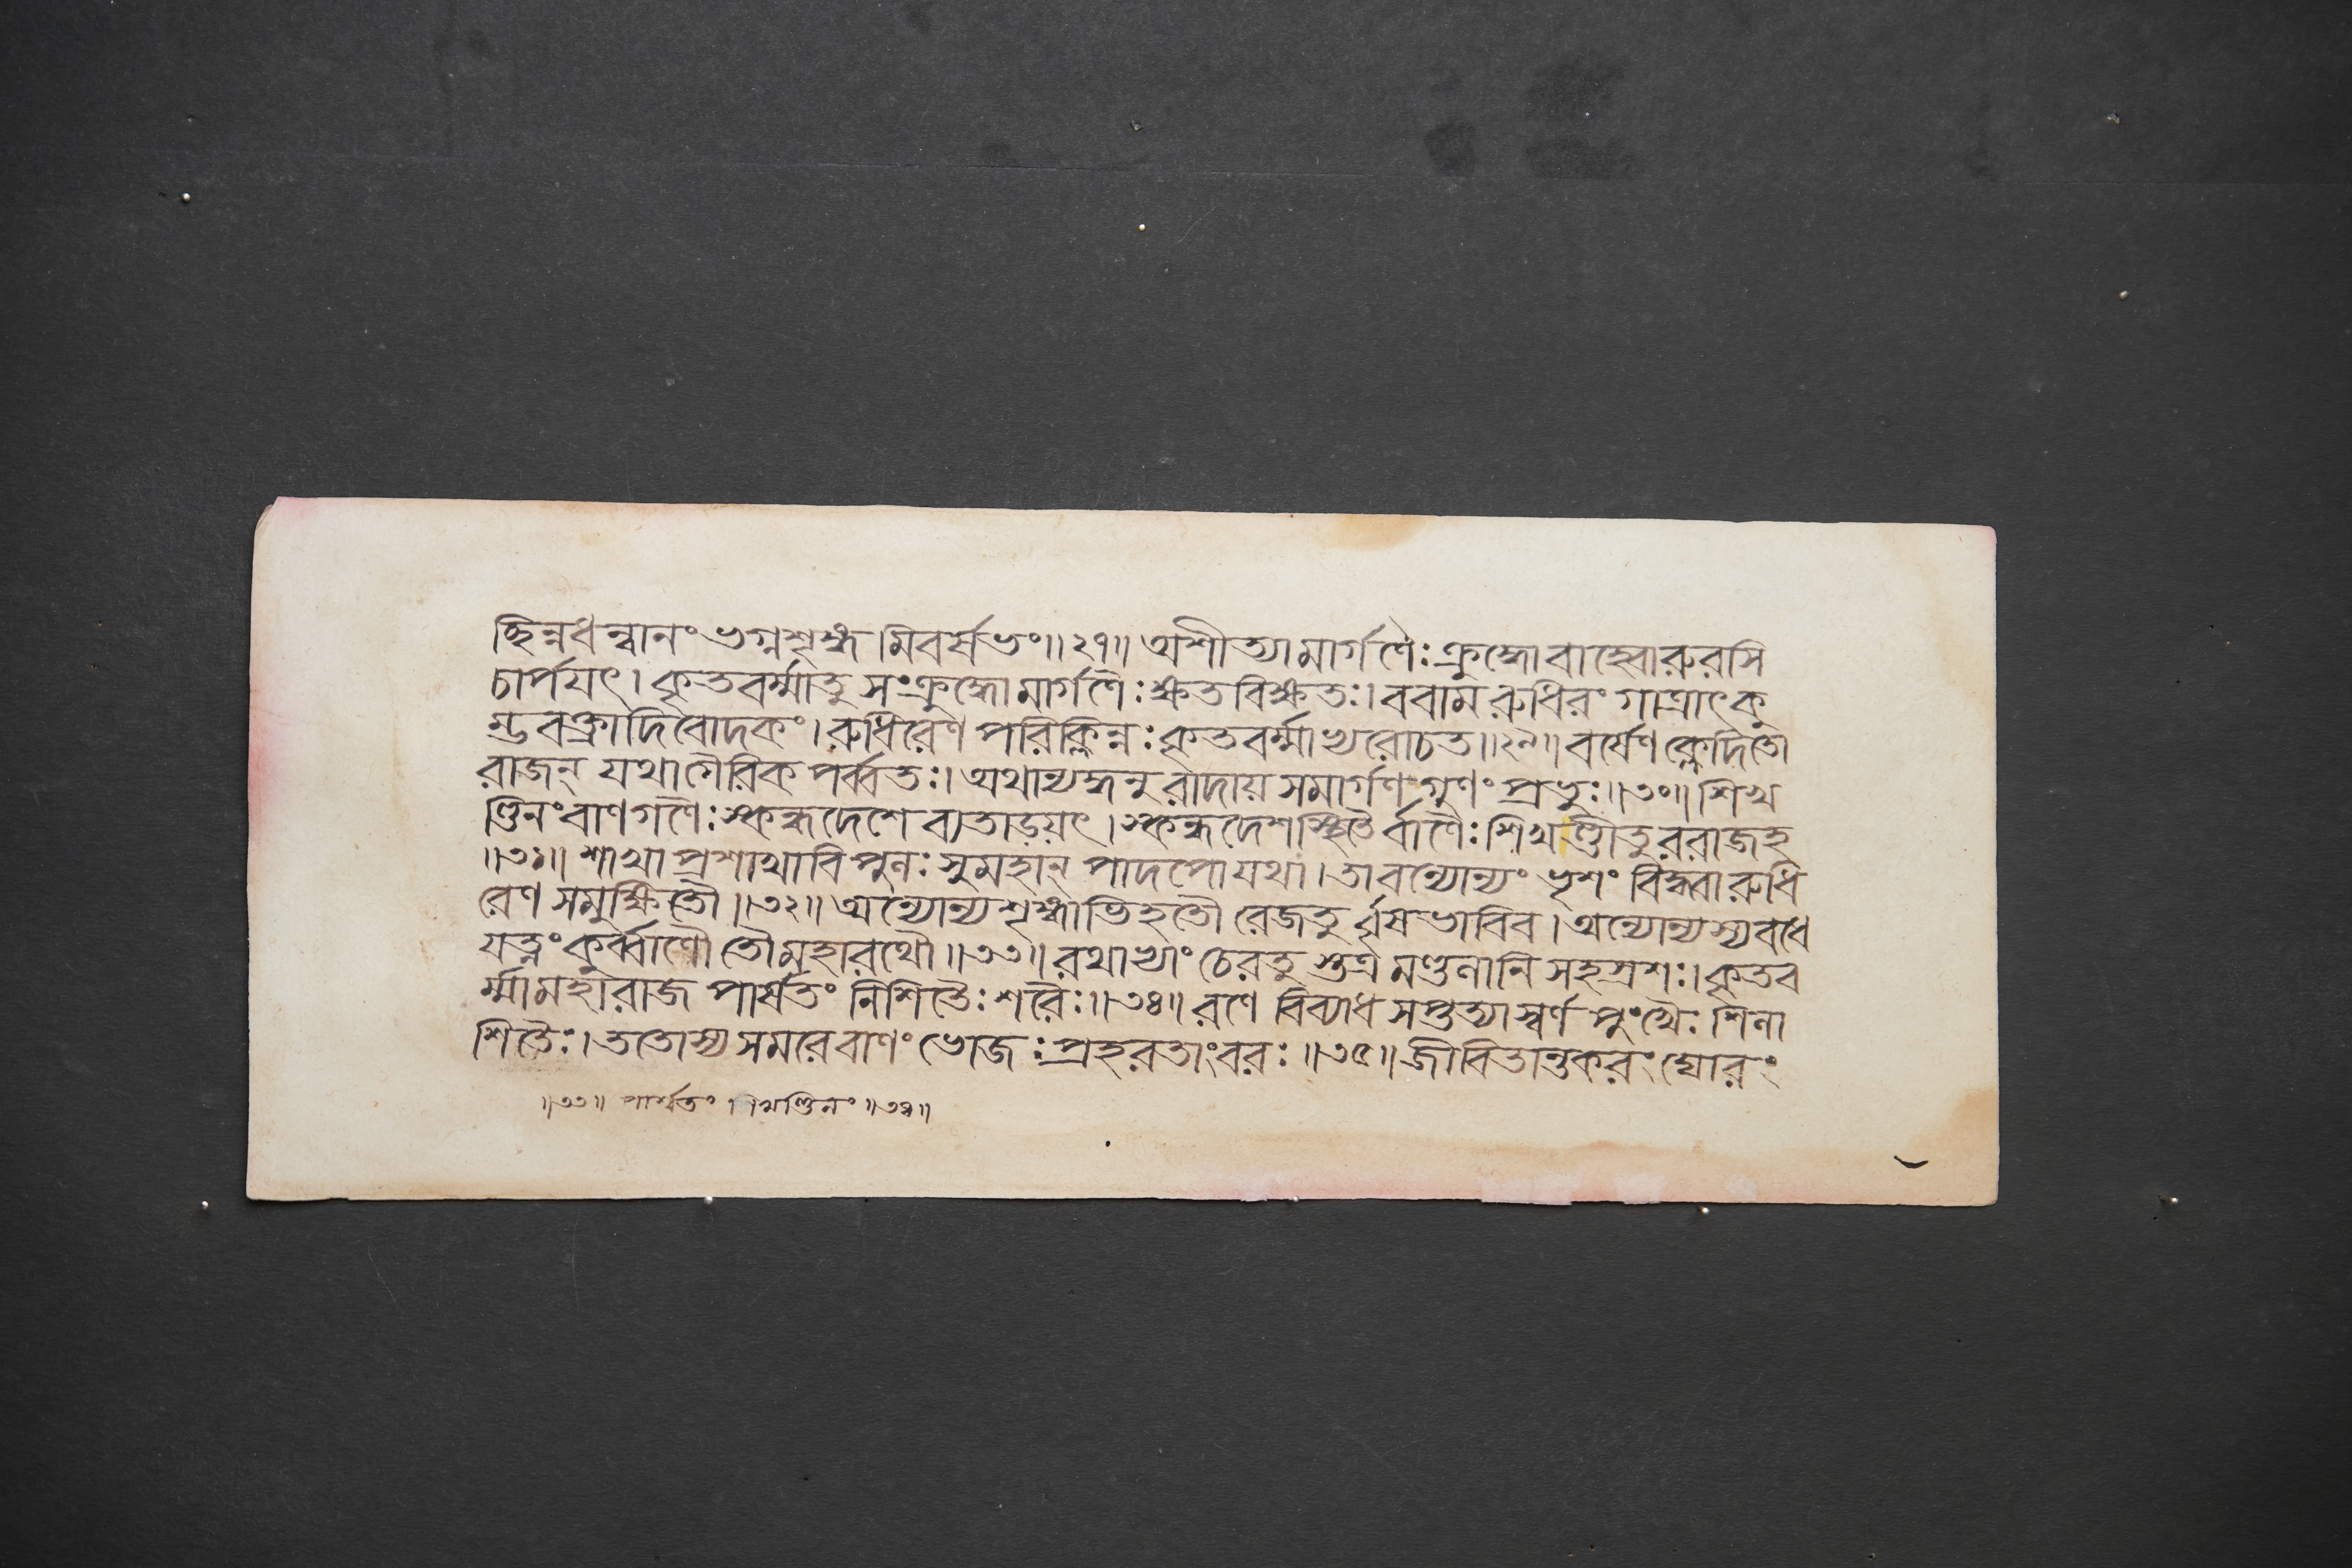 চ্ছিন্নধন্বানং ভগ্নশৃঙ্গমিবর্ষভং॥২৭॥ অশীত্যামার্গণৈঃ ক্রুদ্ধোবাহ্বোরুরসি
চার্পয়ৎ। কৃতবর্ম্মাতু সংক্রুদ্ধোমার্গণৈঃ ক্ষতবিক্ষতঃ। ববাম রুধিরং গাত্রাৎ কু
ম্ভবক্ত্রাদিবোদকং। রুধিরেণ পরিক্লিন্নঃ কৃতবর্ম্মাত্বরোচত॥২৯॥ বর্ষেণ ক্লেদিতো
রাজন্ যথাগৈরিক পর্ব্বতঃ। অথান্যদ্ধনুরাদায় সমার্গণ গুণং প্রভুঃ॥৩০॥ শিখ
ণ্ডিনং বাণগণৈঃ স্কন্ধদেশে ব্যতাড়য়ৎ। স্কন্ধদেশস্থিতৈর্বাণৈঃ শিখণ্ডীতু ররাজহ
॥৩১॥ শাখা প্রশাখাবিপুনঃ সুমহান্ পাদপোযথা। তাবন্যোন্যং ভৃশং বিদ্ধ্বারুধি
রেণ সমুক্ষিতৌ॥৩২॥ অন্যোন্যশৃঙ্গাভিহতৌ রেজতুর্বৃষভাবিব। অন্যোন্যস্যবধে
যত্নং কুর্ব্বাণৌ তৌমহারথৌ॥৩৩॥ রথাভ্যাং চেরতুস্তত্র মণ্ডলানি সহস্রশঃ। কৃতব
র্ম্মামহারাজ পার্ষতং নিশিতৈঃ শরৈঃ॥৩৪॥ রণে বিব্যাধ সপ্তত্যাস্বর্ণ পুংখৈঃ শিলা
শিতৈঃ। ততোস্যসমরেবাণং ভোজঃ প্রহরতাংবরঃ॥৩৫॥ জীবিতান্তকরং ঘোরং
॥৩৩॥ পার্ষতং শিখণ্ডিনং॥৩৪॥